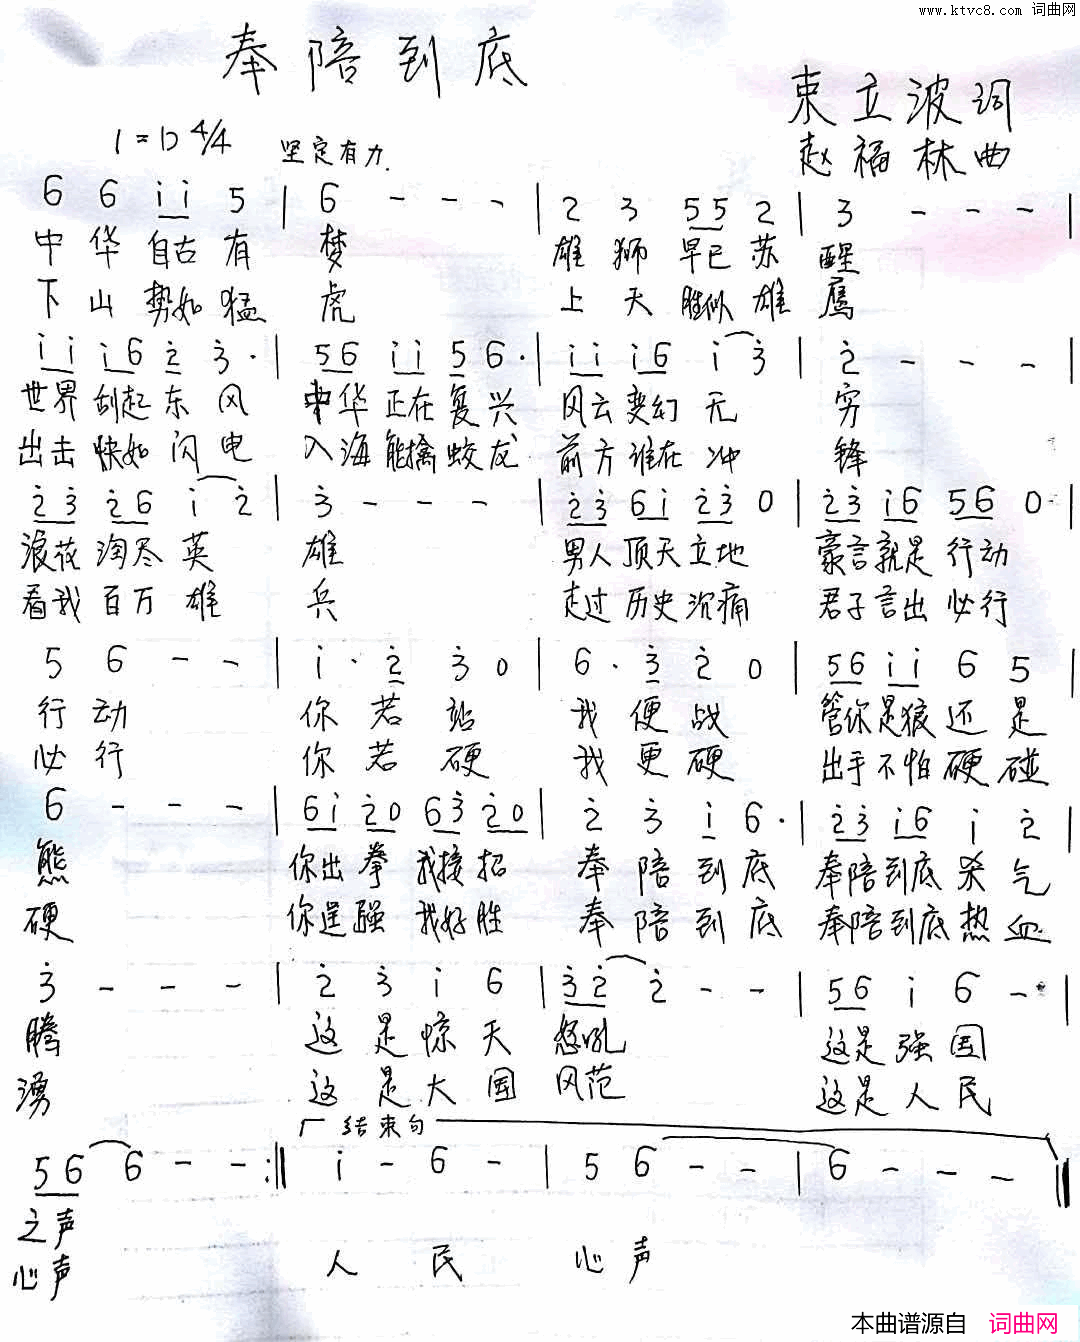 www.ktvc8.com 词曲网
奉陪到底
束立波词
1=D 4/4 坚定有力
赵福林曲
6 6 i i 5 | 6 - - - | 2 3 5 5 2 | 3 - - - |
中华自古有 梦 雄狮早已苏 醒
下山势如猛 虎 上天胜似雄 鹰
i i i 6 2 3 · | 5 6 i i 5 6 · | i i i 6 i 3 | 2 - - - |
世界刮起东风 中华正在复兴 风云变幻无 穷
出击快如闪电 入海能擒蛟龙 前方谁在冲 锋
2 3 2 6 i 2 | 3 - - - | 2 3 6 i 2 3 0 | 2 3 i 6 5 6 0 |
浪花淘尽英 雄 男人顶天立地 豪言就是行动
看我百万雄 兵 走过历史沉痛 君子言出必行
5 6 - - | i · 2 3 0 | 6 · 3 2 0 | 5 6 i i 6 5 |
行动 你若站 我便战 管你是狼还是
必行 你若硬 我更硬 出手不怕硬碰
6 - - - | 6 i 2 0 6 3 2 0 | 2 3 i 6 · | 2 3 i 6 i 2 |
熊 你出拳 我接招 奉陪到底 奉陪到底杀气
硬 你逞强 我好胜 奉陪到底 奉陪到底热血
3 - - - | 2 3 i 6 | 3 2 2 - - | 5 6 i 6 - |
腾 这是惊天 怒吼 这是强国
湧 这是大国 风范 这是人民
结束句
5 6 6 - - :‖ i - 6 - | 5 6 - - | 6 - - - ‖
之声
心声 人民 心声
本曲谱源自 词曲网